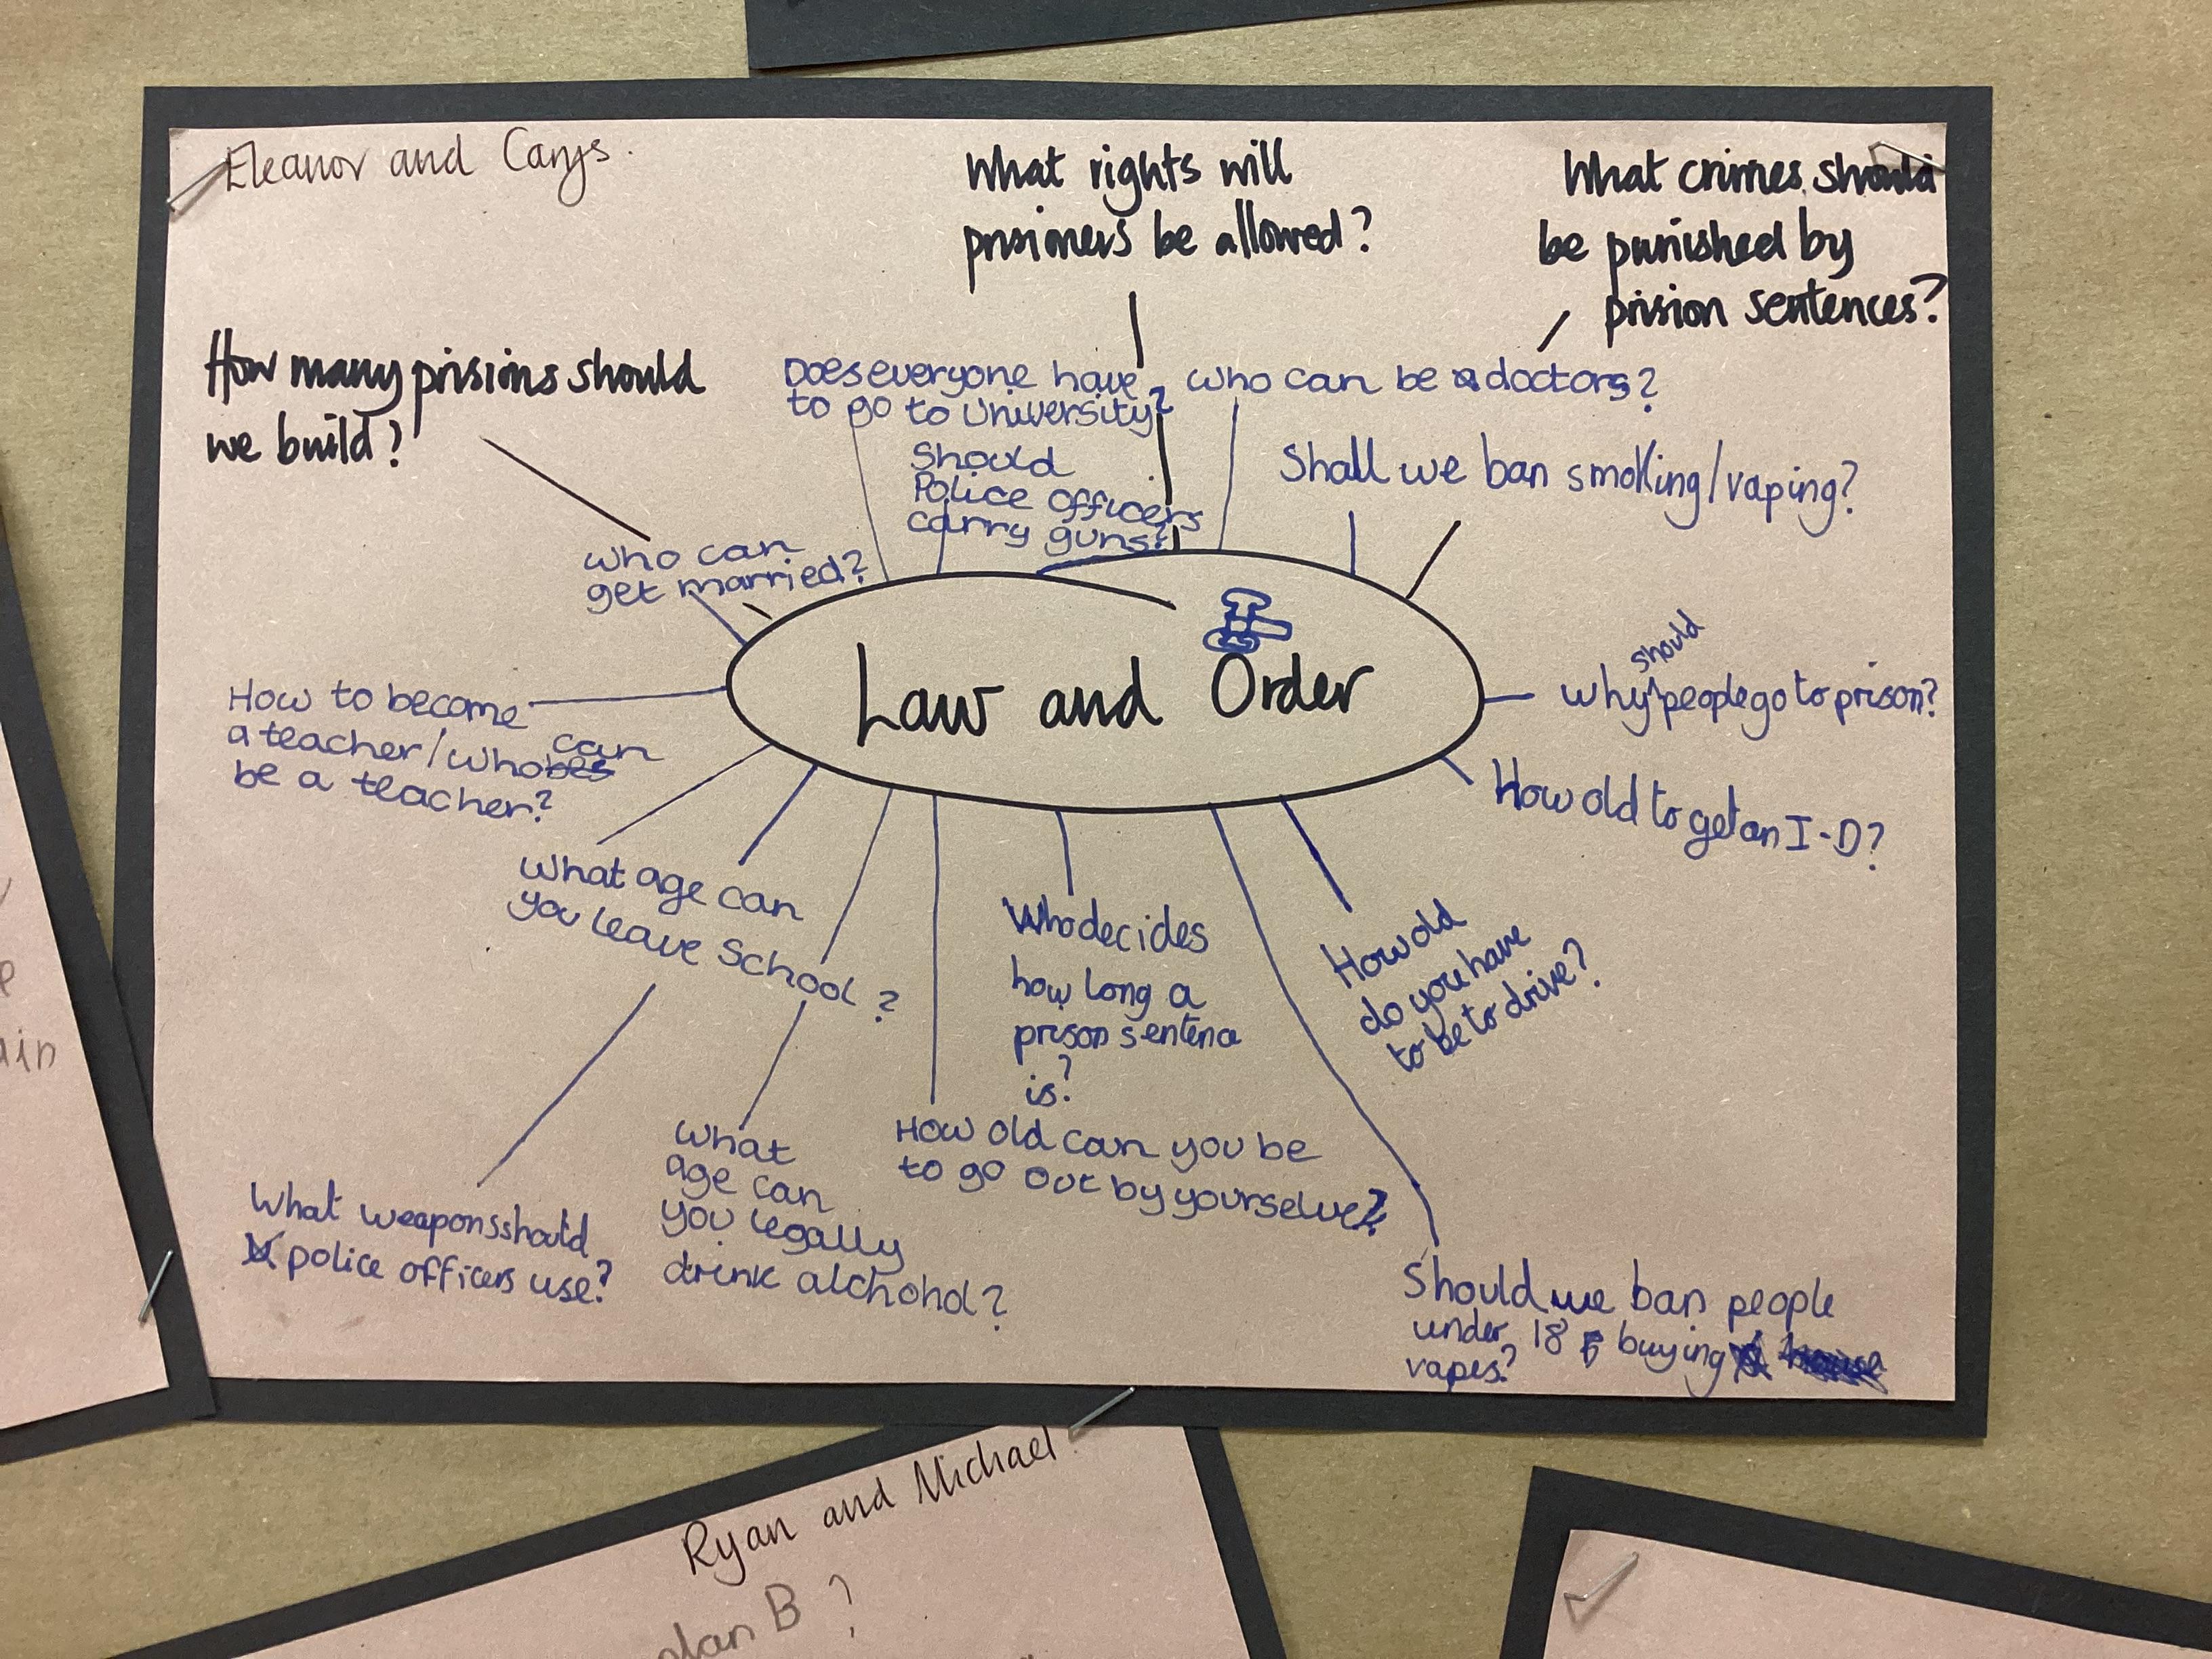 Eleanor and Carys.
What rights will
prisioners be allowed?
What crimes should
be punished by
prision sentences?
How many prisions should
we build?
Does everyone have
to go to University?
who can be doctors?
Should
Police officers
carry guns?
Shall we ban smoking/vaping?
who can
get married?
Law and Order
should
why people go to prison?
How to become
a teacher/who can
be a teacher?
How old to get an I-D?
what age can
you leave School?
Who decides
how long a
prison sentence
is?
How old
do you have
to be to drive?
What weapons should
police officers use?
what
age can
you legally
drink alchohol?
How old can you be
to go out by yourselve?
Should we ban people
under 18 buying
vapes?
ain
Ryan and Michael.
plan B?